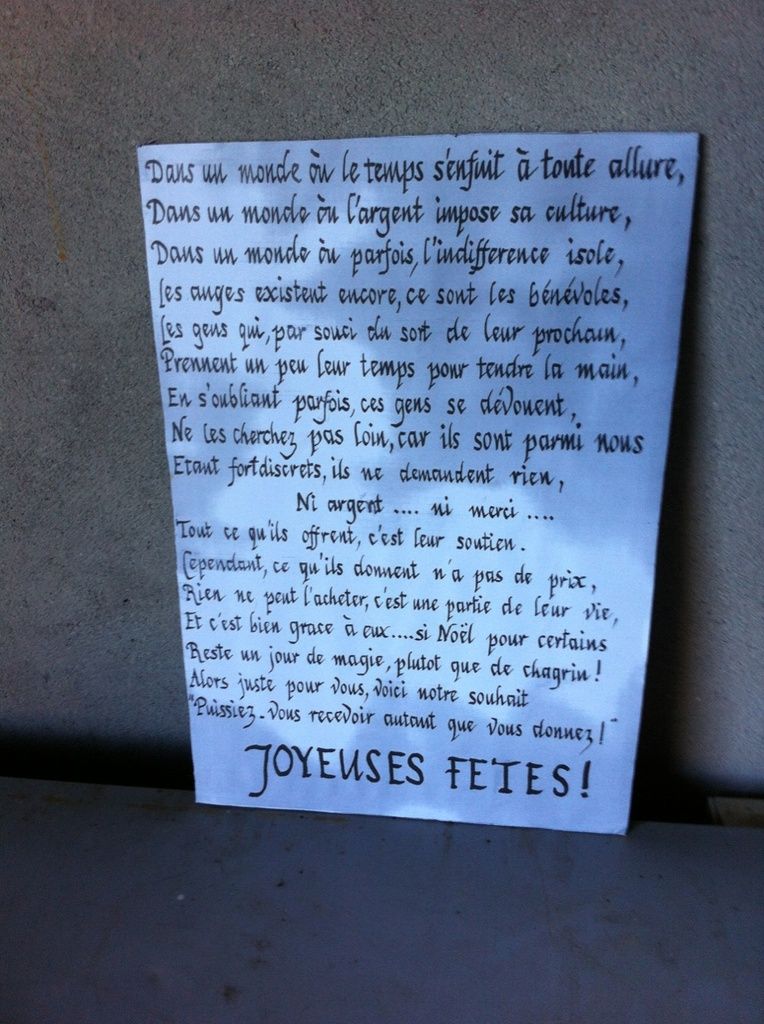 Dans un monde òu le temps s'enfuit à toute allure,
Dans un monde òu l'argent impose sa culture,
Dans un monde òu parfois, l'indifference isole,
Les anges existent encore, ce sont les bénévoles,
Les gens qui, par souci du sort de leur prochain,
Prennent un peu leur temps pour tendre la main,
En s'oubliant parfois, ces gens se dévouent,
Ne les cherchez pas loin, car ils sont parmi nous
Etant fort discrets, ils ne demandent rien,
Ni argent .... ni merci ....
Tout ce qu'ils offrent, c'est leur soutien.
Cependant, ce qu'ils donnent n'a pas de prix,
Rien ne peut l'acheter, c'est une partie de leur vie,
Et c'est bien grace à eux....si Noël pour certains
Reste un jour de magie, plutot que de chagrin!
Alors juste pour vous, voici notre souhait
"Puissiez-vous recevoir autant que vous donnez!"
JOYEUSES FETES!